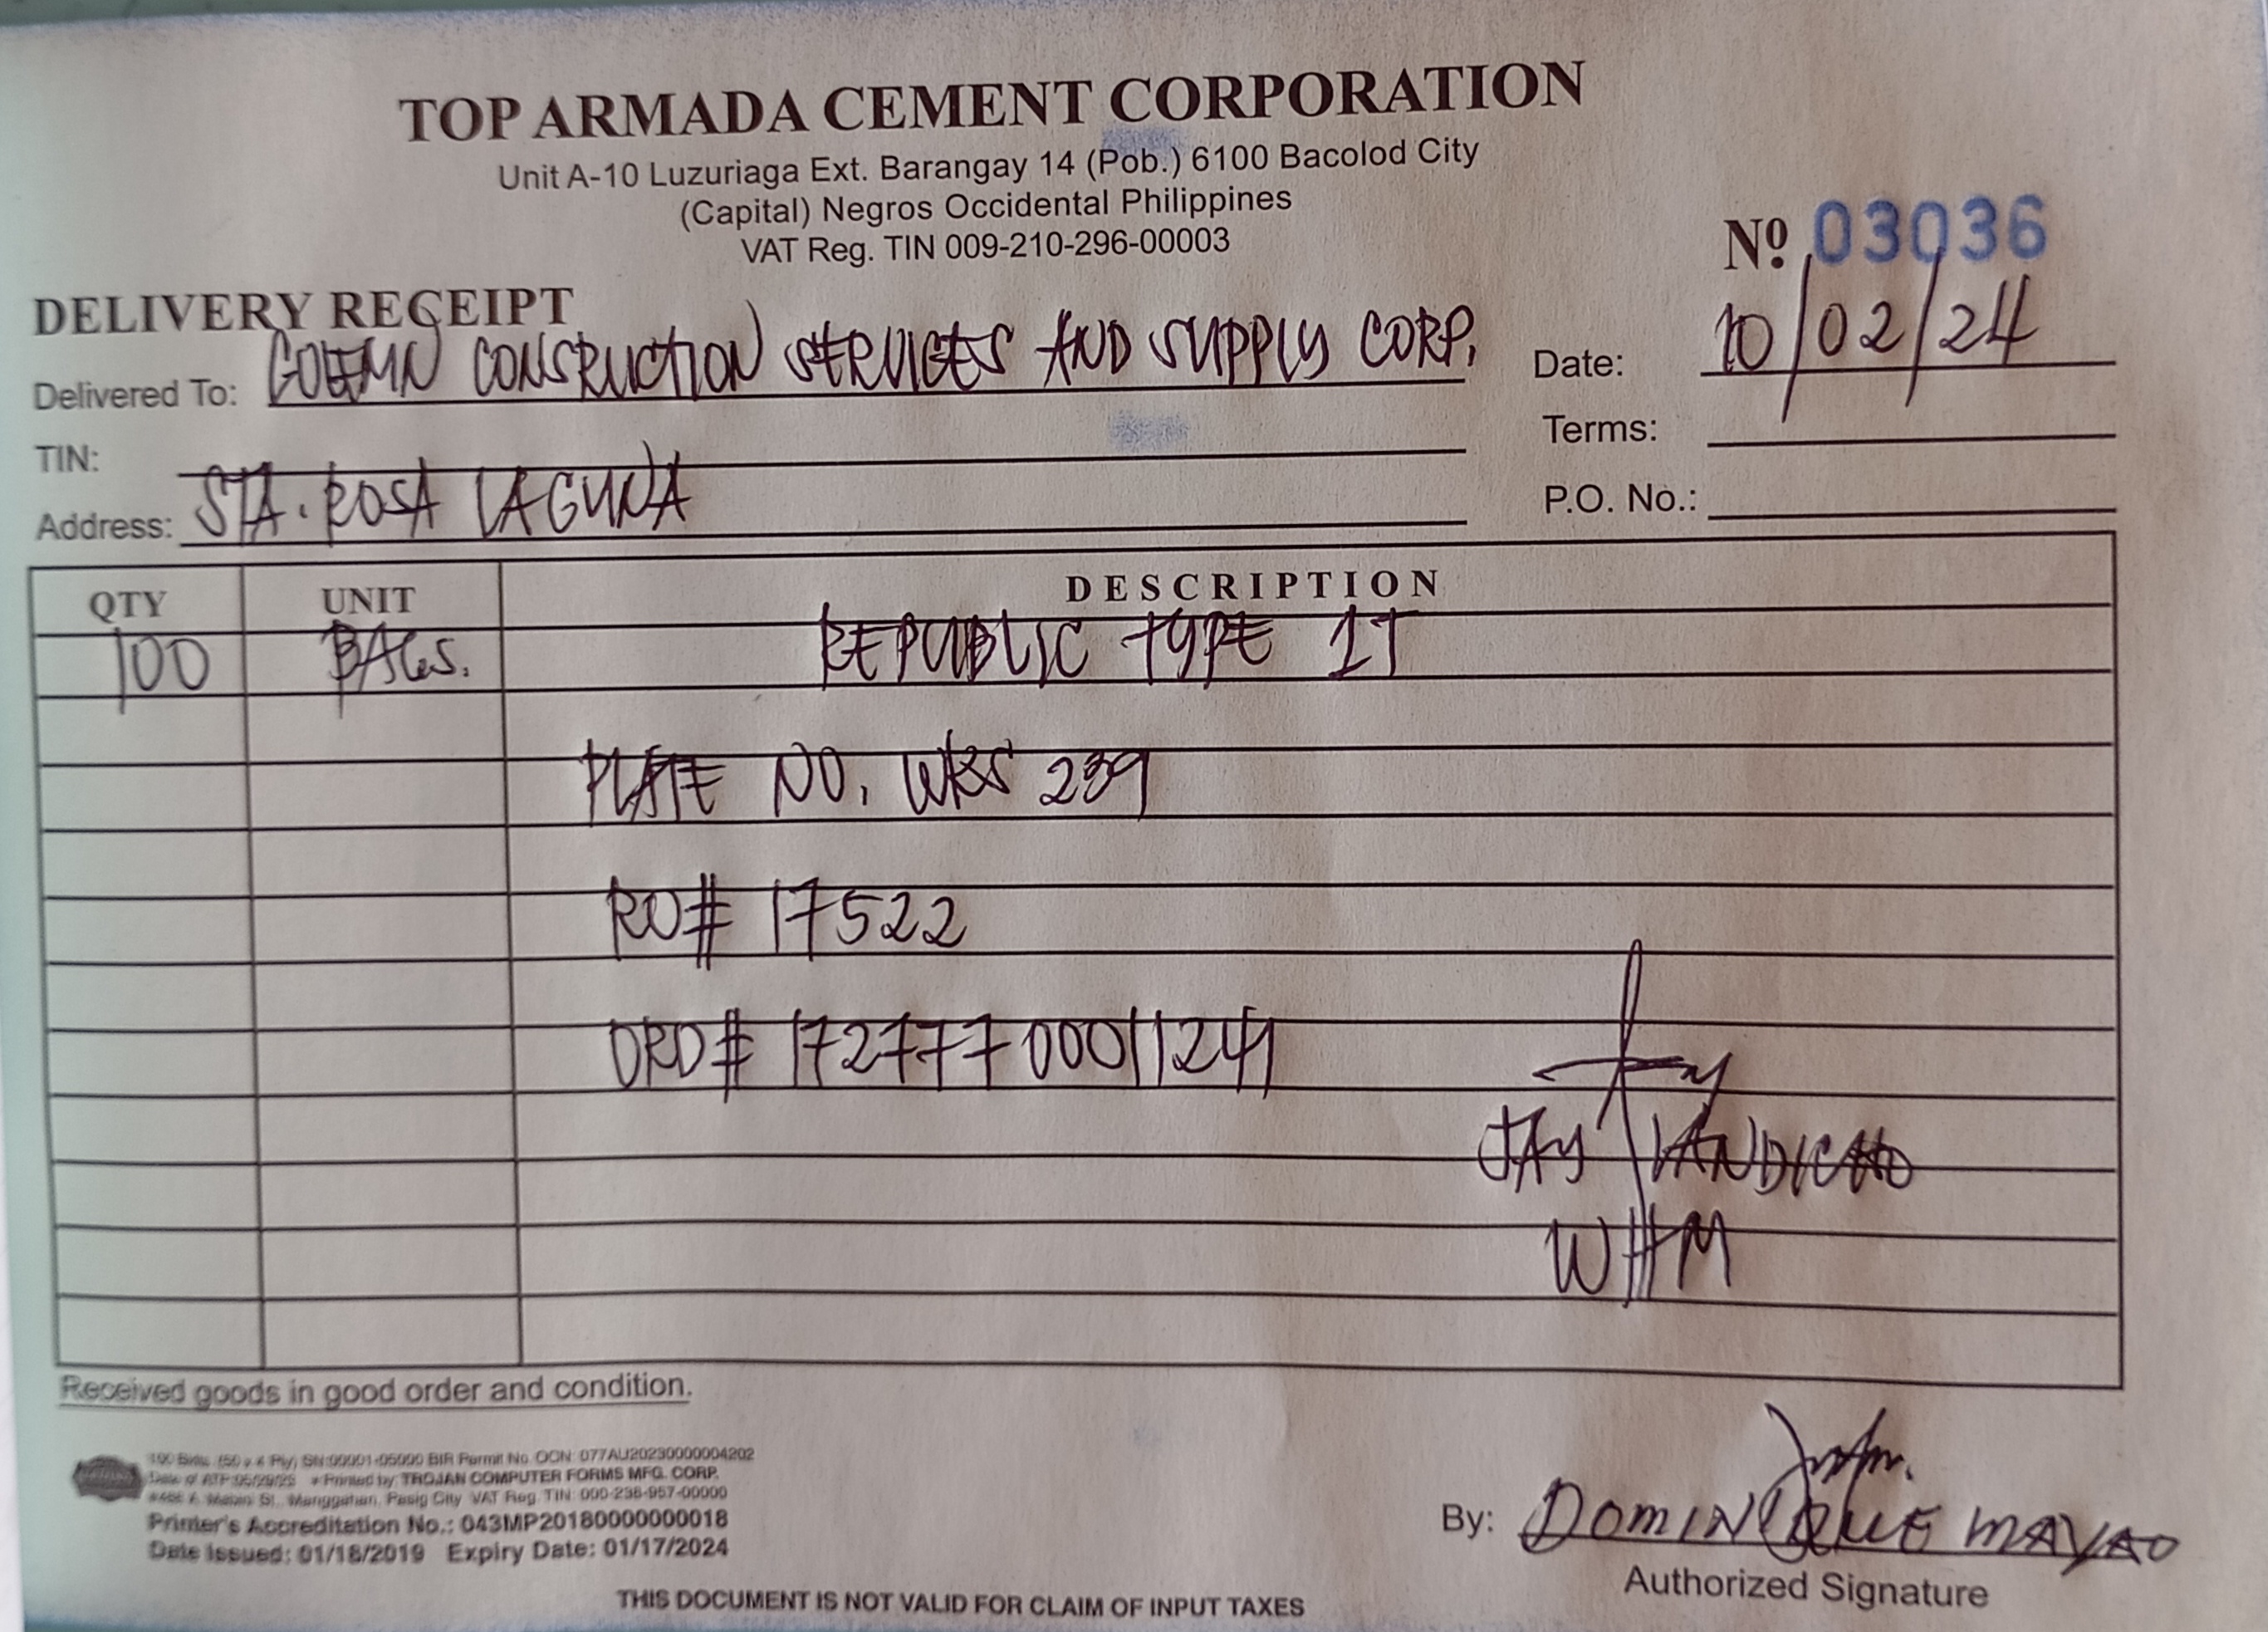 TOP ARMADA CEMENT CORPORATION
Unit A-10 Luzuriaga Ext. Barangay 14 (Pob.) 6100 Bacolod City
(Capital) Negros Occidental Philippines
VAT Reg. TIN 009-210-296-00003
Nº 03036
DELIVERY RECEIPT
Delivered To: CONSRUCTION SERVICES AND SUPPLY CORP.
Date: 10/02/24
TIN:
Terms:
Address: STA. ROSA LAGUNA
P.O. No.:
QTY UNIT DESCRIPTION
100 BAGs. REPUBLIC TYPE 1T
PLATE NO. WKS 239
RO# 17522
ORD# 17277700011241
JAY VANDICHO
WHM
Received goods in good order and condition.
100 Bklts. (50 x 4 Ply) SN:00001-05000 BIR Permit No. OCN: 077AU20230000004202
Date of ATP: Printed by: TROJAN COMPUTER FORMS MFG. CORP.
St., Manggahan, Pasig City VAT Reg. TIN: 000-238-957-00000
Printer's Accreditation No.: 043MP20180000000018
Date Issued: 01/18/2019 Expiry Date: 01/17/2024
By: DOMINIQUE MAYAO
Authorized Signature
THIS DOCUMENT IS NOT VALID FOR CLAIM OF INPUT TAXES